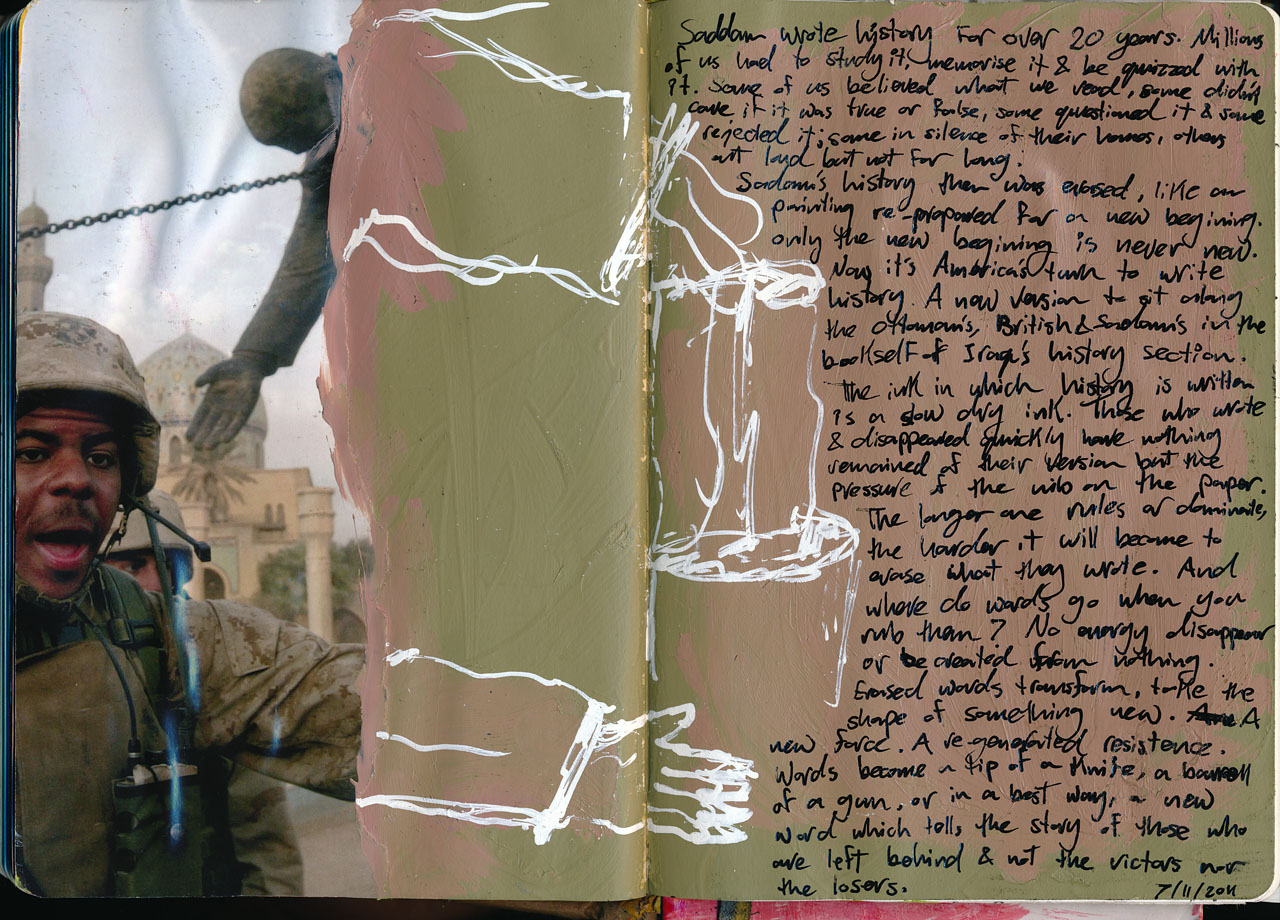 Saddam wrote history for over 20 years. Millions
of us had to study it, memorise it & be quizzed with
it. Some of us believed what we read, some didn't
care if it was true or false, some questioned it & some
rejected it; some in silence of their homes, others
out loud but not for long.
Sadam's history then was erased, like an
painting re-prepared for a new begining.
only the new begining is never new.
Now it's America's turn to write
history. A new version to sit along
the Ottoman's, British & Sadam's in the
bookself of Iraq's history section.
The ink in which history is written
is a slow dry ink. Those who wrote
& disappeared quickly have nothing
remained of their version but the
pressure of the nib on the paper.
The longer one rules or dominate,
the harder it will become to
erase what they wrote. And
where do words go when you
rub them? No energy disappear
or be created form nothing.
Erased words transform, take the
shape of something new. A
new force. A re-generated resistence.
Words become a tip of a knife, a barrell
of a gun, or in a best way, a new
word which tells the story of those who
are left behind & not the victors nor
the losers.
7/11/2011